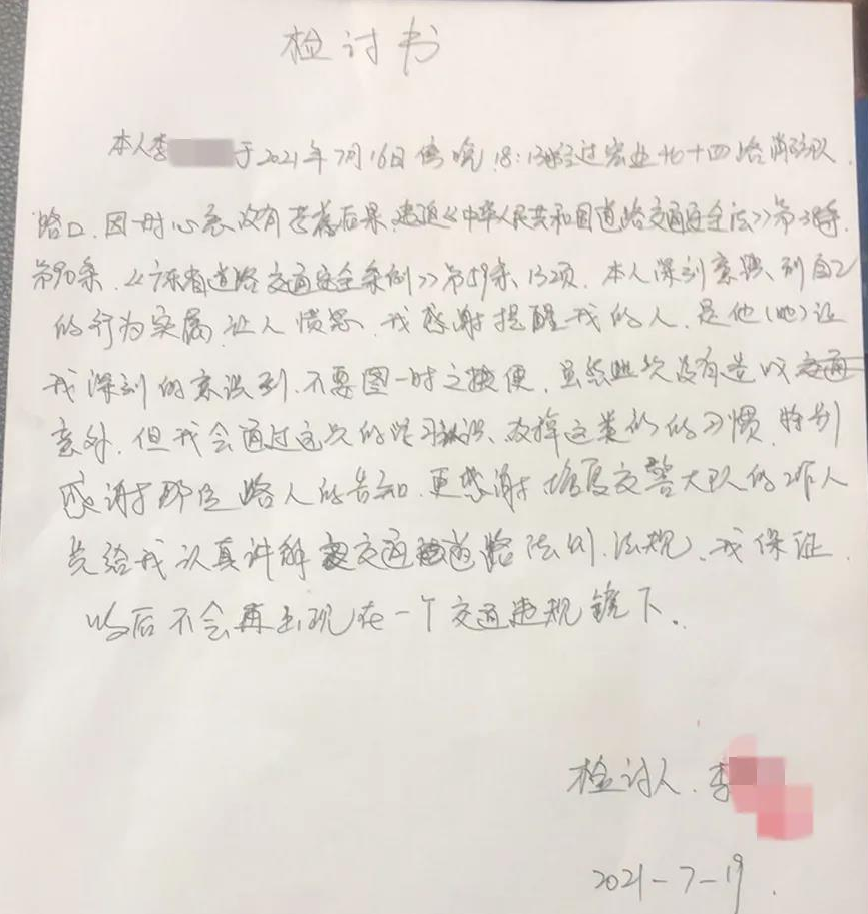 检讨书
本人李 于2021年7月16日傍晚18:13经过宏业北十四路消防队
路口,因一时心急没有考虑后果,违返《中华人民共和国道路交通安全法》第38条,
第90条,《广东省道路交通安全条例》第59条、132项,本人深刻意识到自己
的行为实属让人愤怒,我感谢提醒我的人,是他(她)让
我深刻的意识到,不要图一时之捷便,虽然此次没有造成交通
意外,但我会通过这次的学习认识,改掉这类的习惯,特别
感谢那位路人的告知,更感谢塘厦交警大队的工作人
员给我认真讲解交通道路法例、法规,我保证
以后不会再出现在一个交通违规镜下.
检讨人.李
2021-7-19.